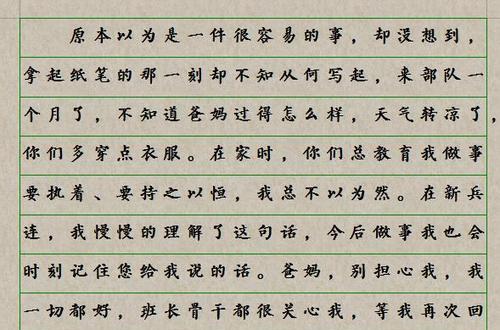 原本以为是一件很容易的事，却没想到，
拿起纸笔的那一刻却不知从何写起，来部队一
个月了，不知道爸妈过得怎么样，天气转凉了，
你们多穿点衣服。在家时，你们总教育我做事
要执着、要持之以恒，我总不以为然。在新兵
连，我慢慢的理解了这句话，今后做事我也会
时刻记住您给我说的话。爸妈，别担心我，我
一切都好，班长骨干都很关心我，等我再次回